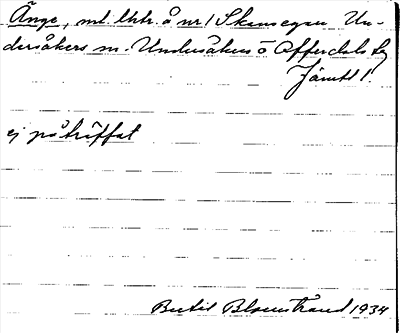 Änge, ml. lhtr. å nr 1 Skansegen Un-
dersåkers sn. Undersåkers o Offerdals tg
Jämtl l.
ej påträffat
Bertil Blomstrand 1934